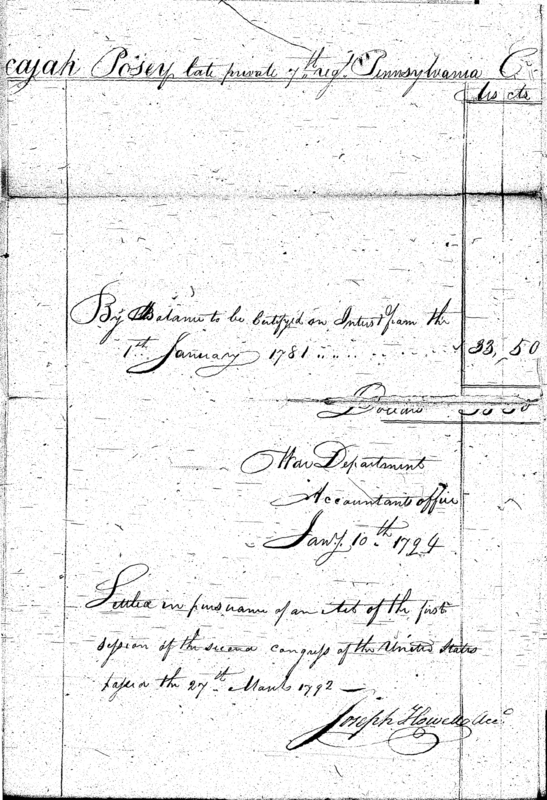 cajah Posey late private 7th regt Pennsylvania Cr
cts
By Balance to be Certified on Interest from the
1st January 1781 33,50
Dollars
War Department
Accountants office
Jany. 10th 1794
Settled in pursuance of an Act of the first
session of the second congress of the United States
passed the 27th March 1792 —
Joseph Howell Acct